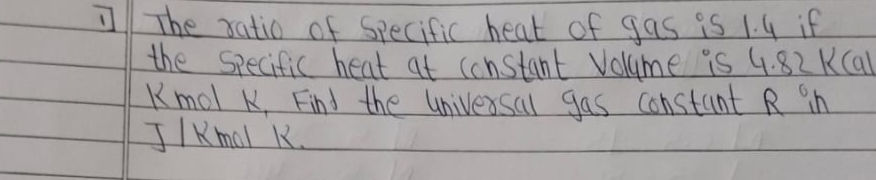 1] The ratio of specific heat of gas is 1.4 if
the specific heat at constant Volume is 4.82 KCal
Kmol K, Find the Universal gas Constant R in
J/Kmol K.